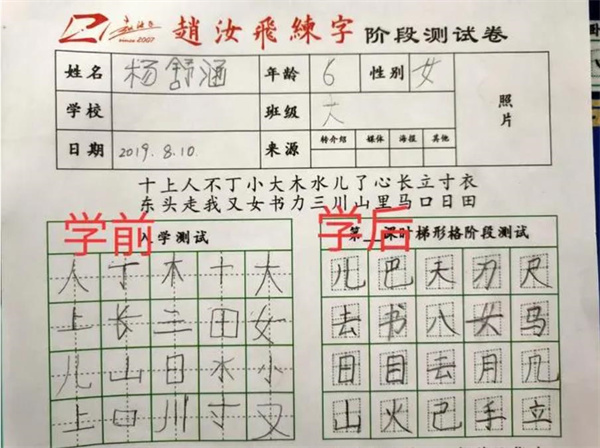 since 2007
趙汝飛練字 阶段测试卷
姓名 杨舒涵 年龄 6 性别 女
学校 班级 大
照片
日期 2019.8.10. 来源 转介绍 媒体 海报 其他
十上人不丁小大木水儿了心长立寸衣
东头走我又女书力三川山里马口日田
学前 入学测试
人丁木十大
上长三田女
儿山日水小
上口川寸又
学后 第 课时梯形格阶段测试
儿巴天刀尺
去书八大马
日目去月几
山火己手立